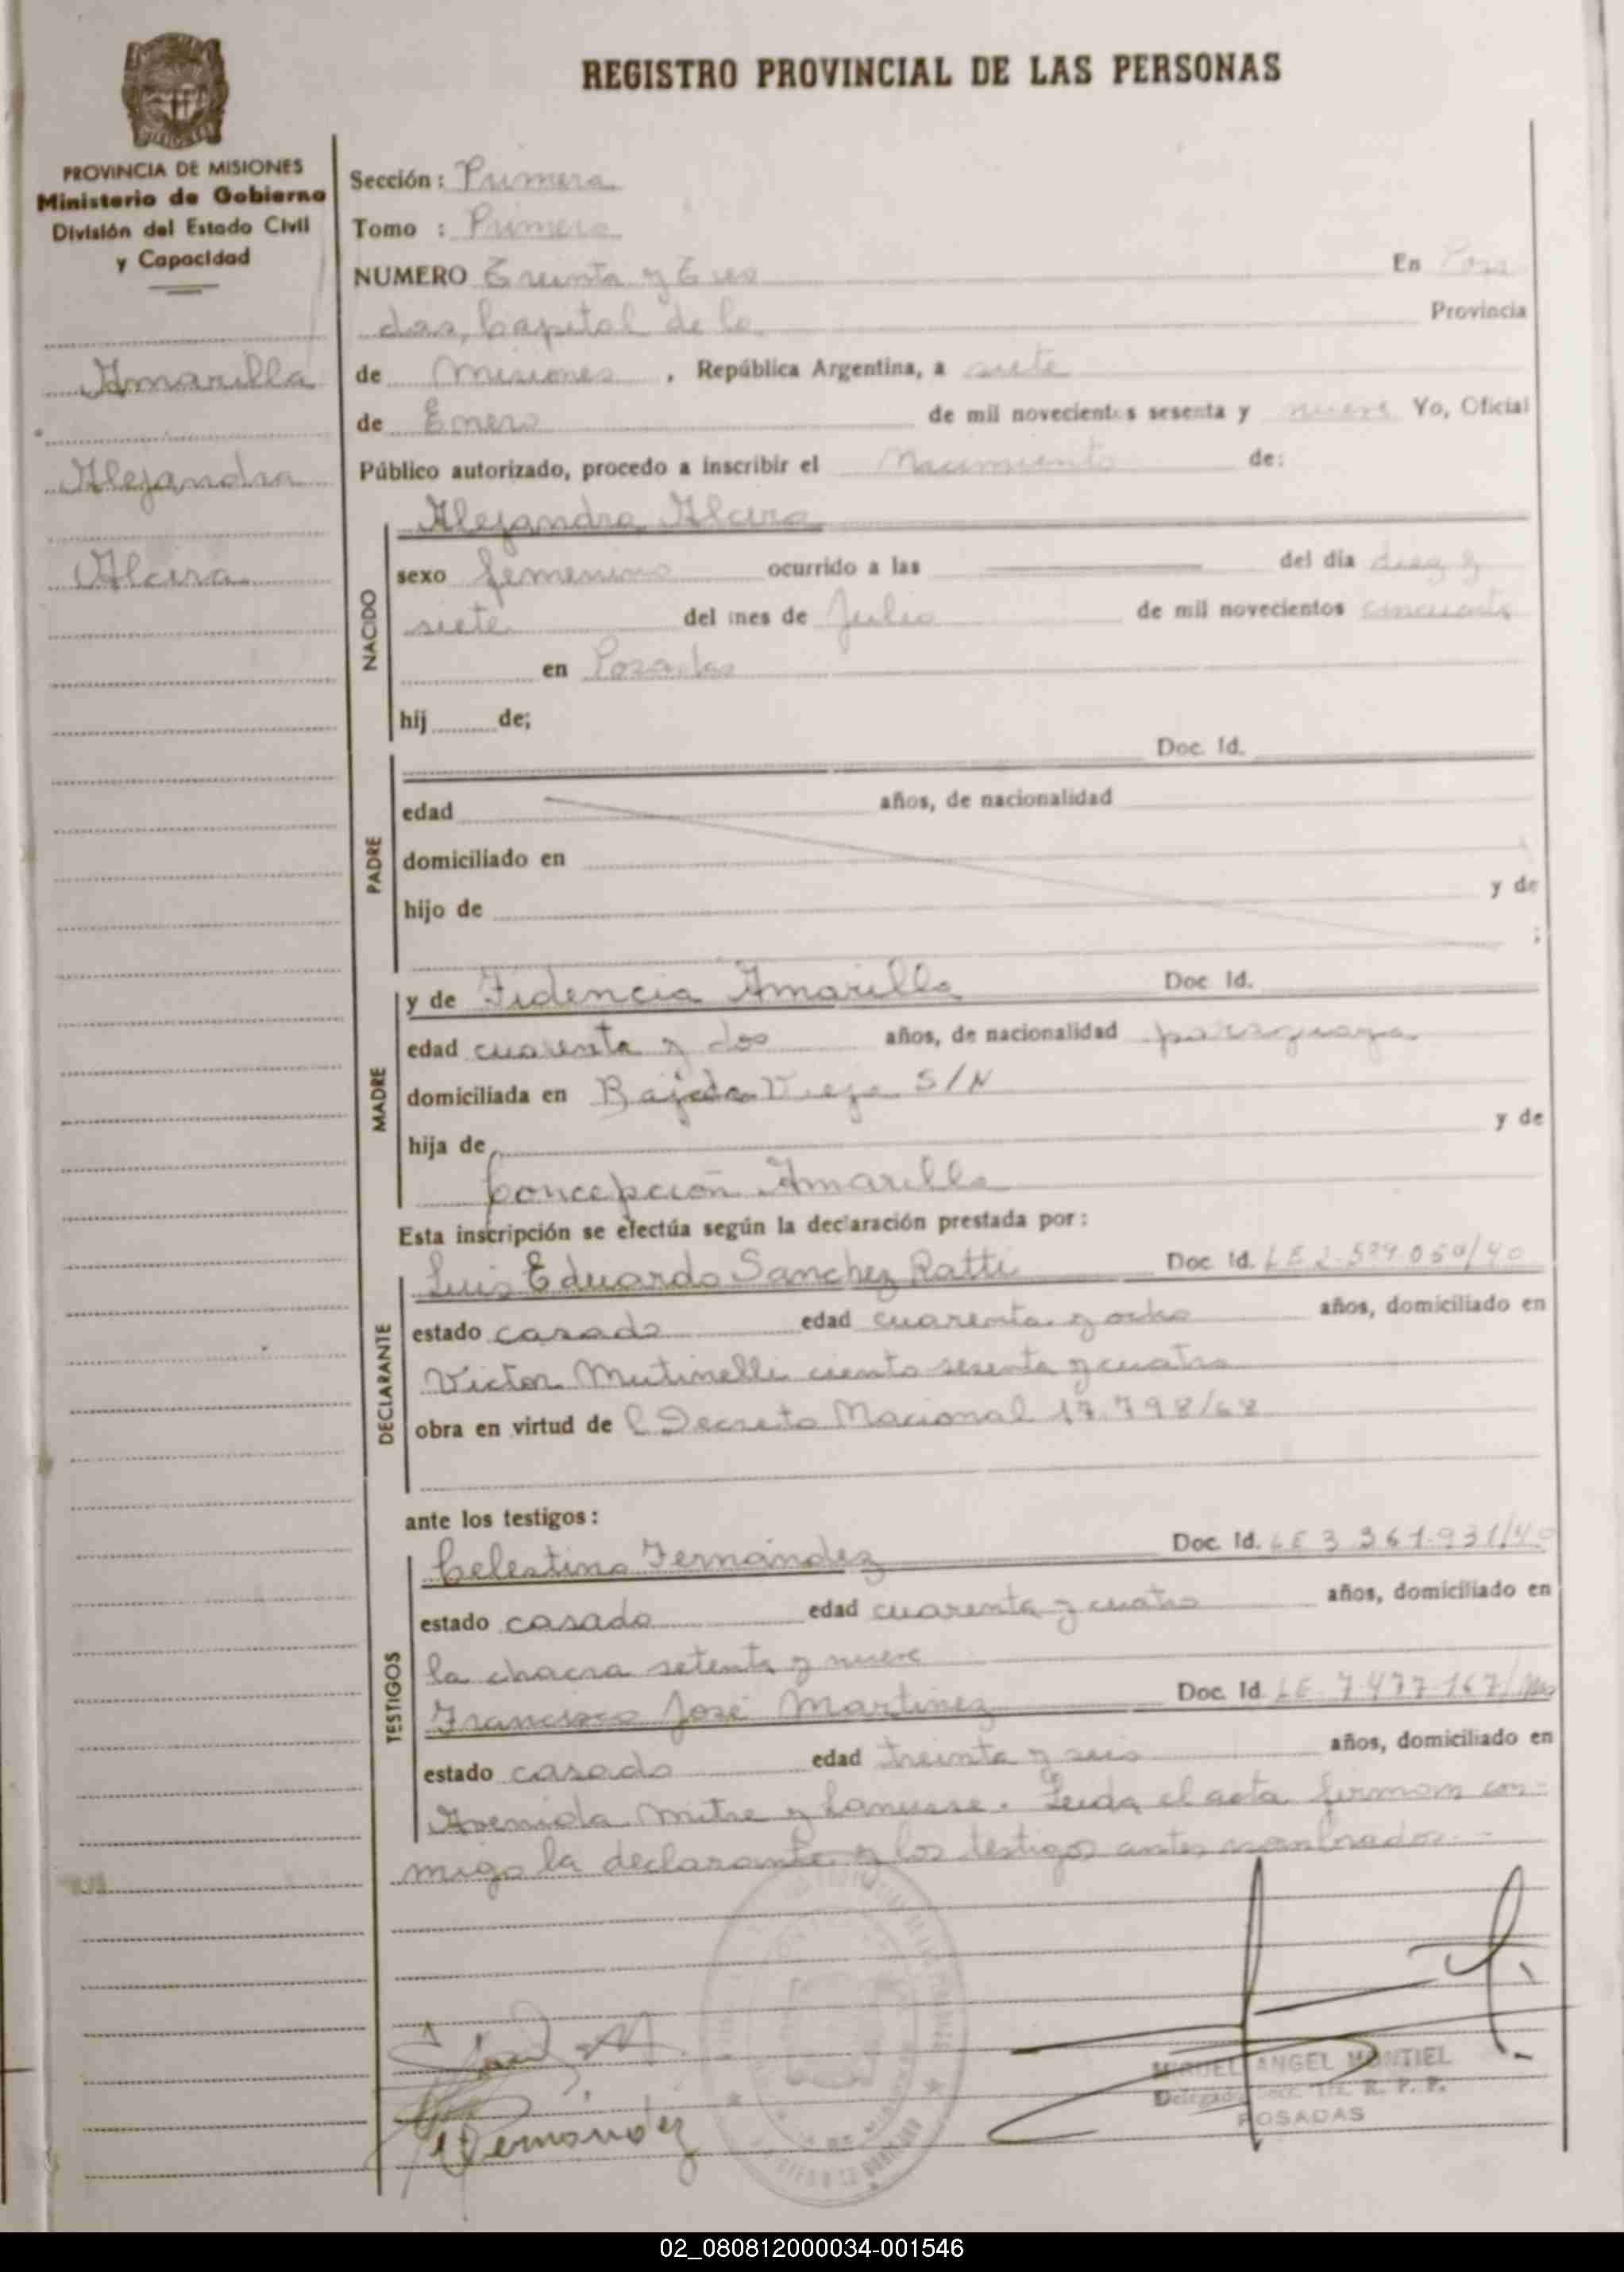 REGISTRO PROVINCIAL DE LAS PERSONAS
PROVINCIA DE MISIONES
Ministerio de Gobierno
División del Estado Civil
y Capacidad
Amarilla
Alejandra
Alcira
Sección: Primera
Tomo : Primero
NUMERO Treinta y Tres En Posa
das, Capital de la Provincia
de Misiones, República Argentina, a siete
de Enero de mil novecientos sesenta y nueve Yo, Oficial
Público autorizado, procedo a inscribir el Nacimiento de:
NACIDO
Alejandra Alcira
sexo femenino ocurrido a las del día diez y
siete del mes de Julio de mil novecientos cincuenta
en Posadas
hij de;
PADRE
Doc. Id.
edad años, de nacionalidad
domiciliado en
hijo de y de
;
MADRE
y de Fidencia Amarilla Doc Id.
edad cuarenta y dos años, de nacionalidad paraguaya
domiciliada en Bajada Vieja S/N
hija de y de
Concepción Amarilla
Esta inscripción se efectúa según la declaración prestada por:
DECLARANTE
Luis Eduardo Sanchez Ratti Doc Id. LE 2.589.050/40
estado casado edad cuarenta y ocho años, domiciliado en
Victor Mutinelli ciento sesenta y cuatro
obra en virtud de l Decreto Nacional 17.798/68
ante los testigos:
TESTIGOS
Celestino Fernández Doc. Id. LE 3.361.931/40
estado casado edad cuarenta y cuatro años, domiciliado en
la chacra setenta y nueve
Francisco José Martinez Doc. Id LE 7.477.167/
estado casado edad treinta y seis años, domiciliado en
Avenida Mitre y Lanusse. Leida el acta firman con-
migo la declarante y los testigos antes nombrados.-
Fernández
MIGUEL ANGEL MONTIEL
Delegado Secc. 1ra. R. P. P.
POSADAS
02_080812000034-001546